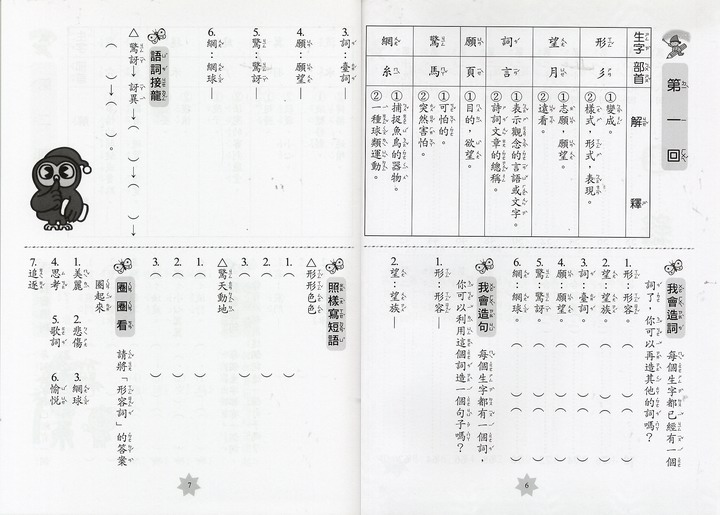 第一回
生字 部首 解釋
形 彡 ①變成。
②樣式，形式，表現。
望 月 ①志願，願望。
②遠看。
詞 言 ①表示觀念的言語或文字。
②詩詞文章的總稱。
願 頁 ①目的，欲望。
驚 馬 ①可怕的。
②突然害怕。
網 糸 ①捕捉魚鳥的器物。
②一種球類運動。
我會造詞 每個生字都已經有一個
詞了，你可以再造其他的詞嗎？
1. 形：形容。（ ）（ ）
2. 望：望族。（ ）（ ）
3. 詞：臺詞。（ ）（ ）
4. 願：願望。（ ）（ ）
5. 驚：驚訝。（ ）（ ）
6. 網：網球。（ ）（ ）
我會造句 每個生字都有一個詞，
你可以利用這個詞造一個句子嗎？
1. 形：形容—
2. 望：望族—
6
3. 詞：臺詞—
4. 願：願望—
5. 驚：驚訝—
6. 網：網球—
語詞接龍
△驚訝→訝異→（ ）→（ ）→
（ ）→（ ）。
照樣寫短語
△形形色色
1.（ ）
2.（ ）
3.（ ）
△驚天動地
1.（ ）
2.（ ）
3.（ ）
圈圈看 請將「形容詞」的答案
圈起來
1. 美麗 2. 悲傷 3. 網球
4. 思考 5. 歌詞 6. 愉悅
7. 追逐
7